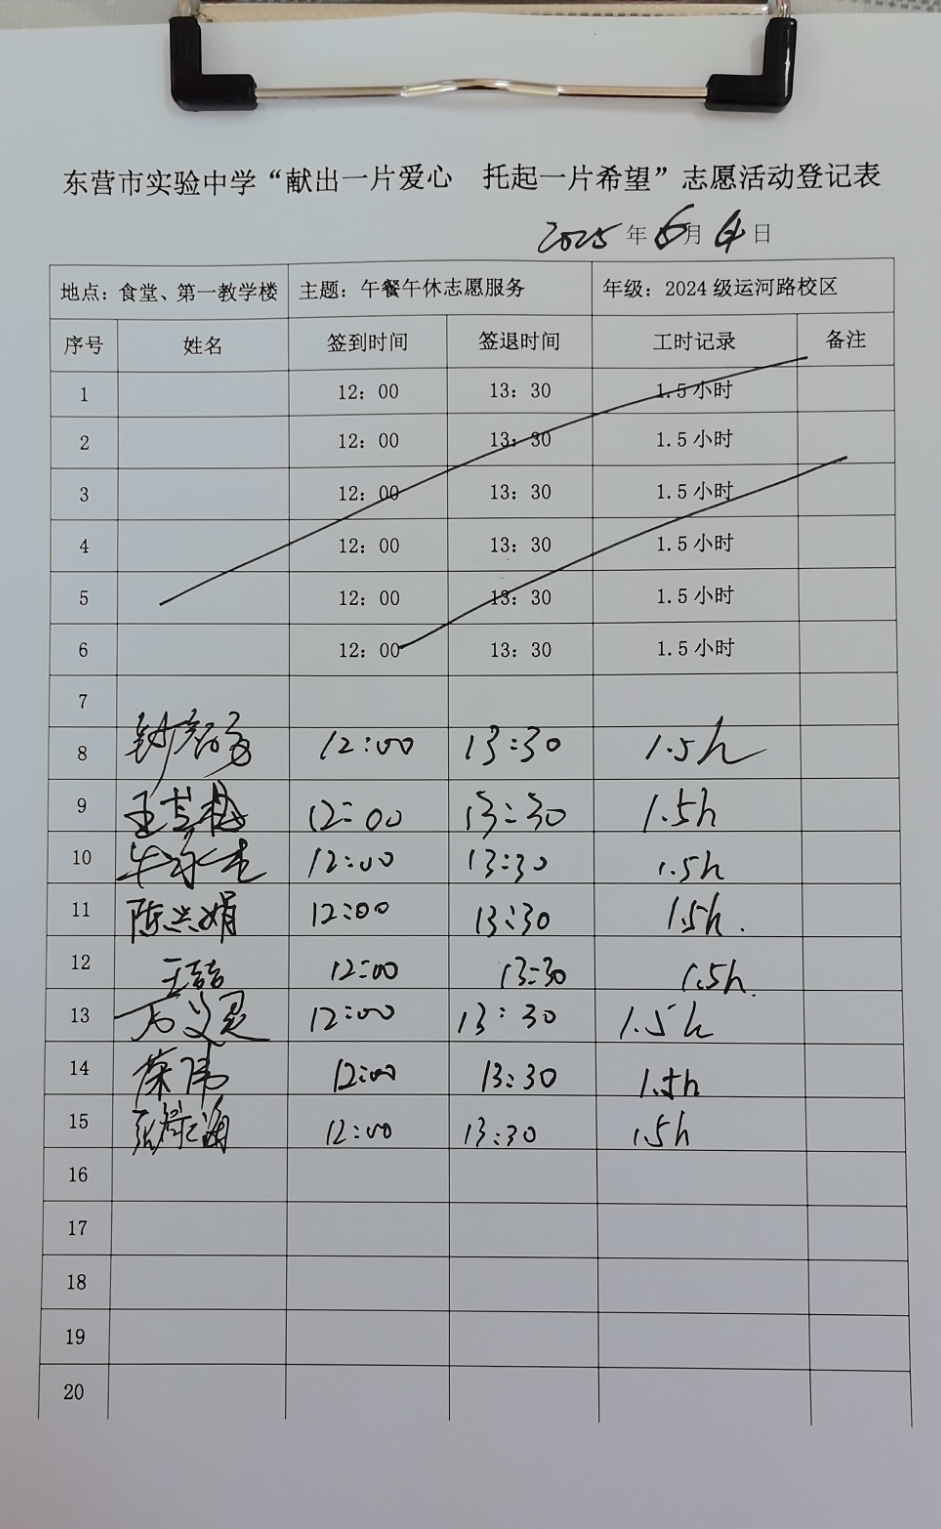 东营市实验中学“献出一片爱心 托起一片希望”志愿活动登记表
2025年6月4日
地点：食堂、第一教学楼 主题：午餐午休志愿服务 年级：2024级运河路校区
序号 姓名 签到时间 签退时间 工时记录 备注
1 12：00 13：30 1.5小时
2 12：00 13：30 1.5小时
3 12：00 13：30 1.5小时
4 12：00 13：30 1.5小时
5 12：00 13：30 1.5小时
6 12：00 13：30 1.5小时
7
8 12:00 13:30 1.5h
9 12:00 13:30 1.5h
10 12:00 13:30 1.5h
11 陈兴娟 12:00 13:30 1.5h.
12 王喆 12:00 13:30 1.5h.
13 12:00 13:30 1.5h
14 荣伟 12:00 13:30 1.5h
15 12:00 13:30 1.5h
16
17
18
19
20